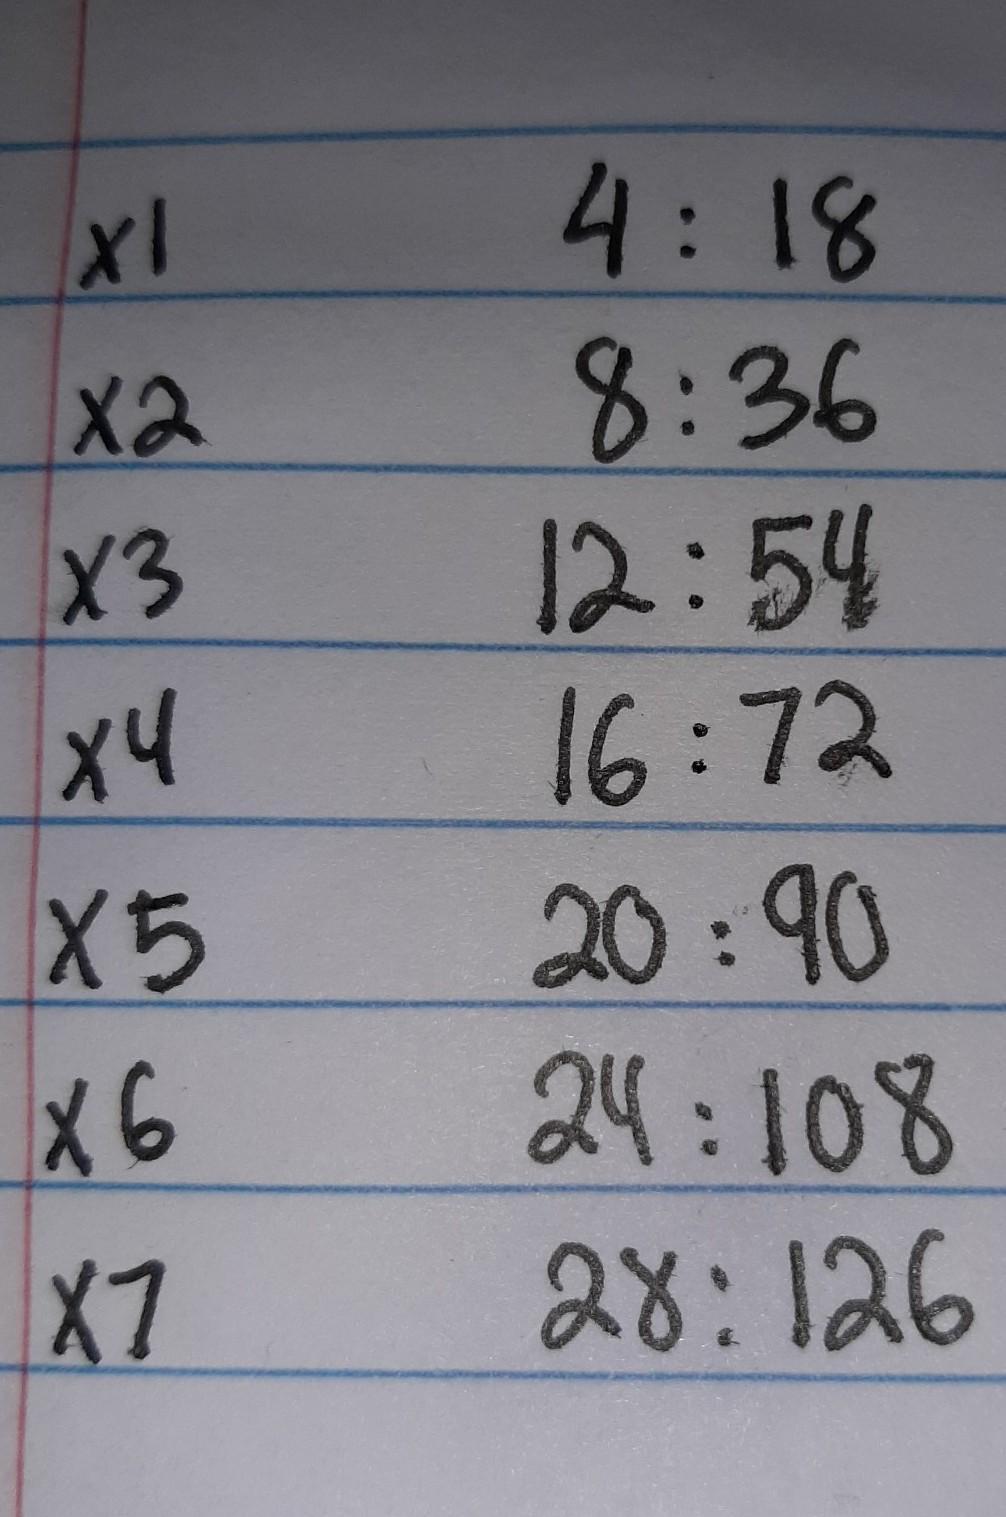 x1 4 : 18
x2 8 : 36
x3 12 : 54
x4 16 : 72
x5 20 : 90
x6 24 : 108
x7 28 : 126